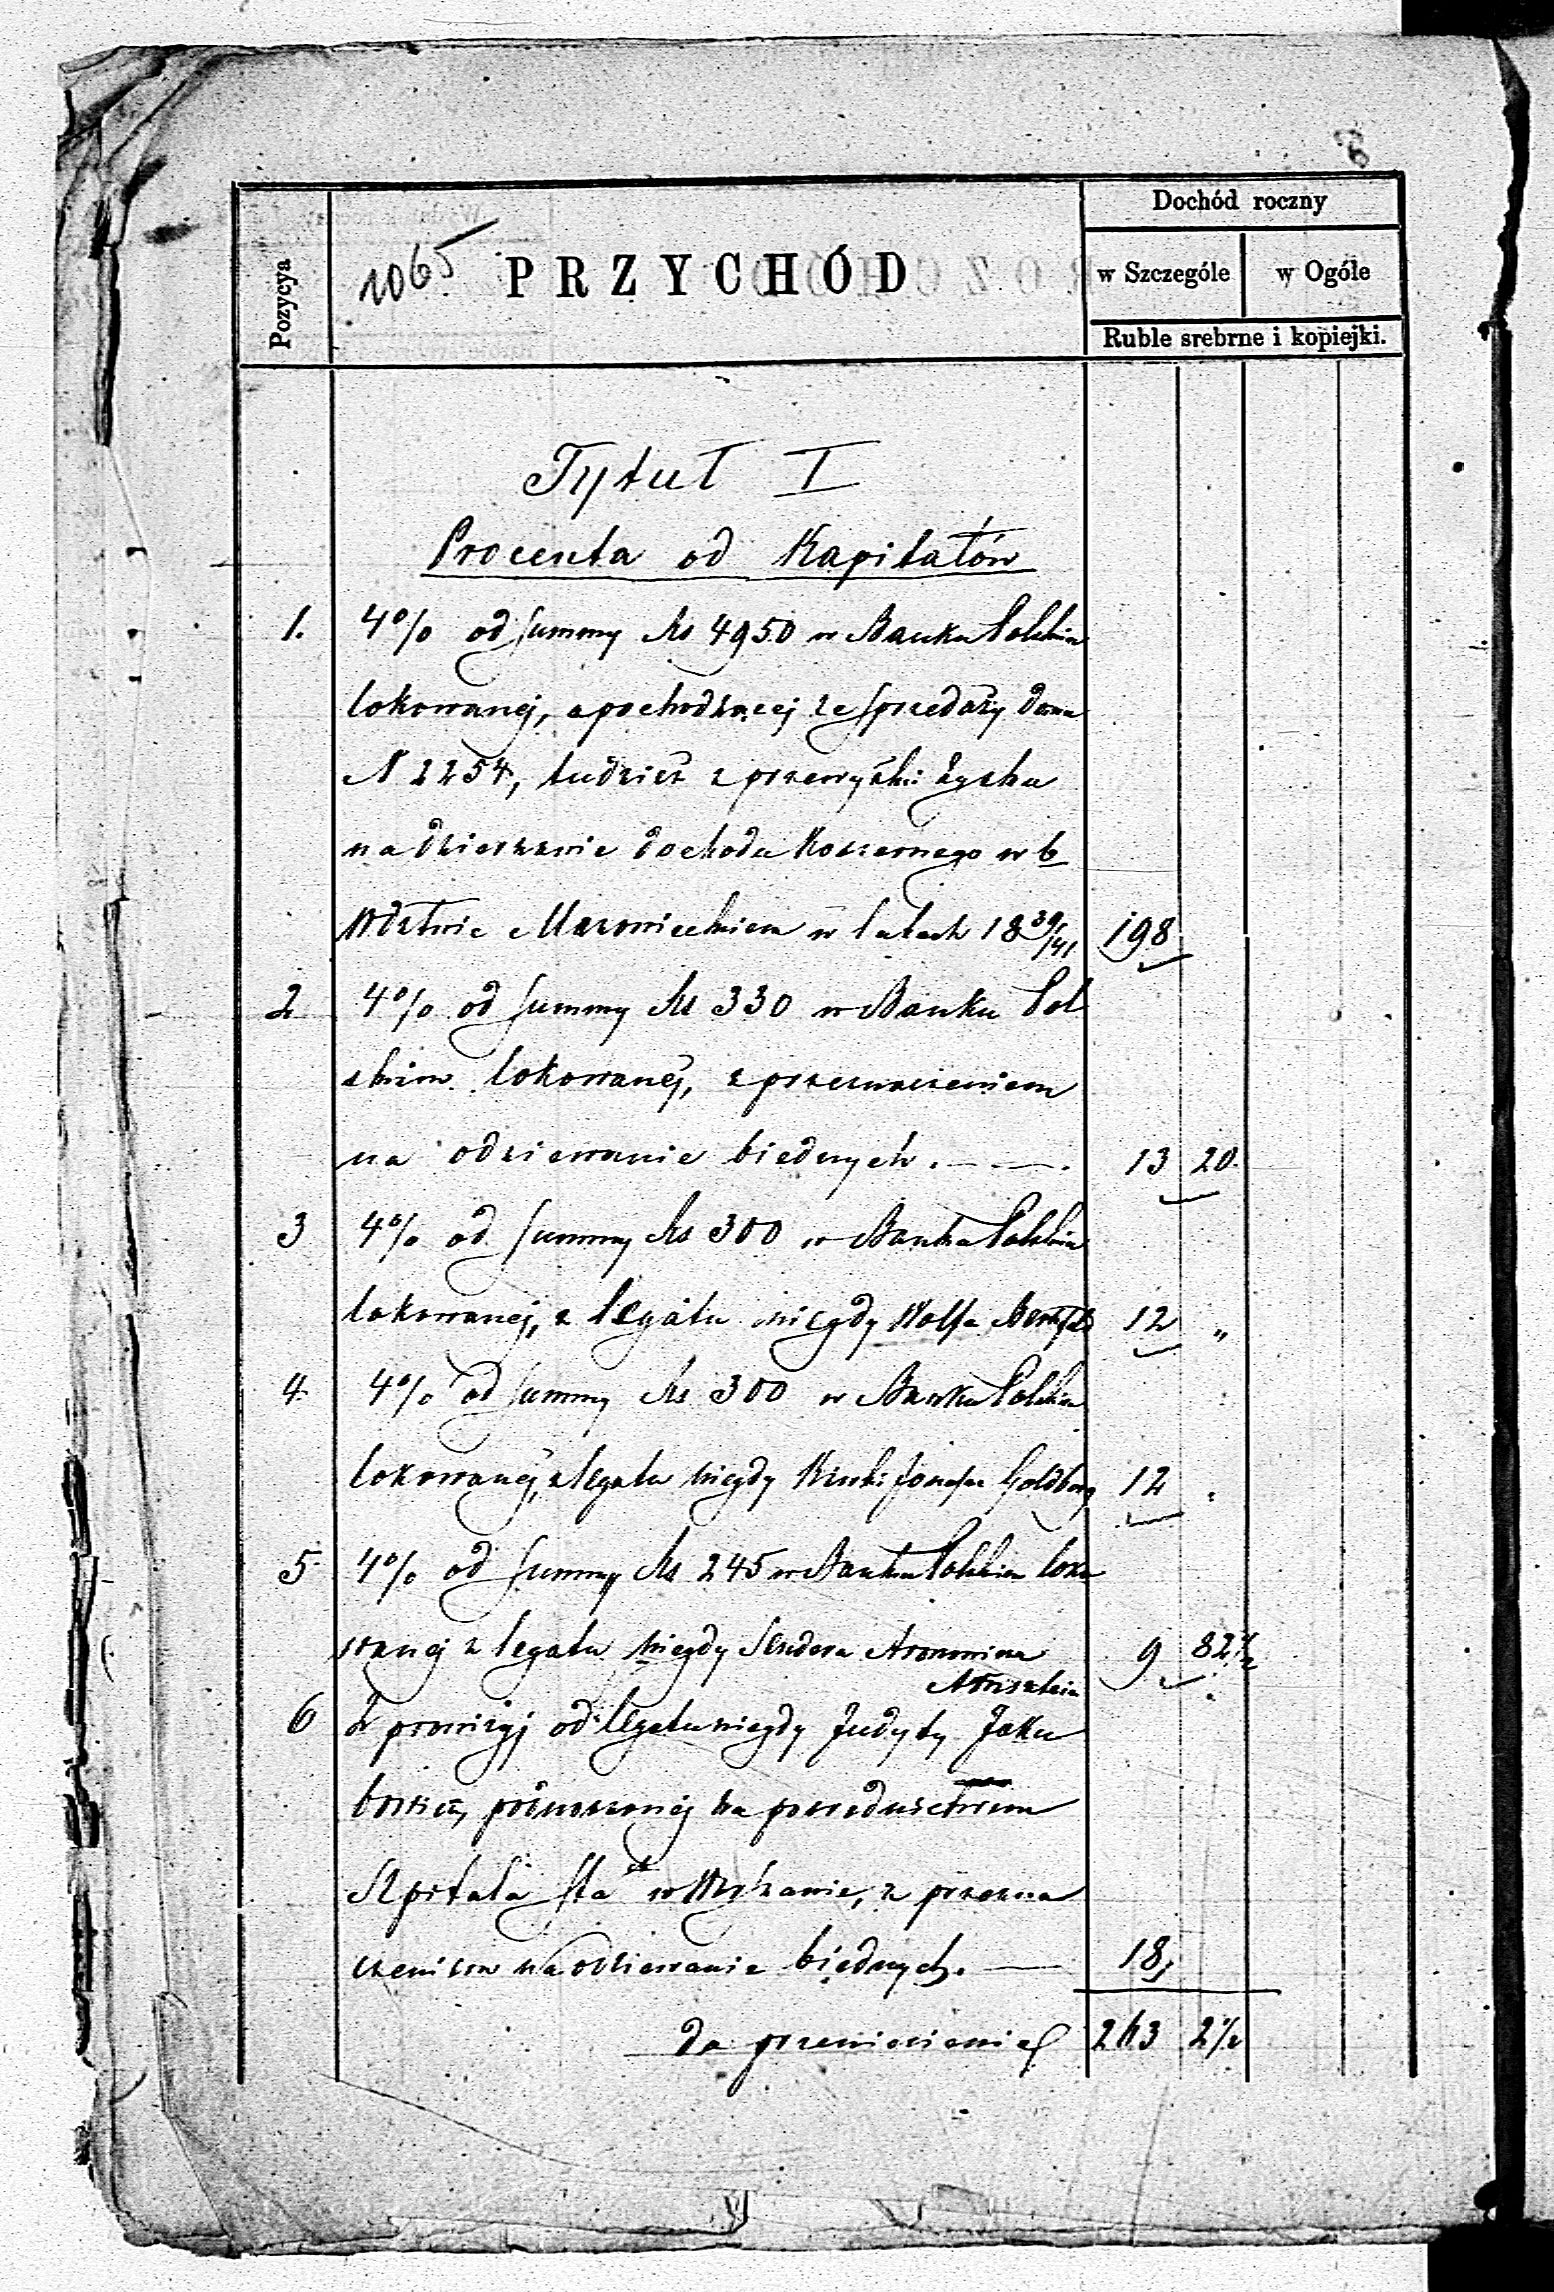 8
Dochód roczny
Pozycya
1065
PRZYCHÓD
w Szczególe
w Ogóle
Ruble srebrne i kopiejki.
Tytuł I
Procenta od Kapitałów
1. 4% od summy Rs 4950 w Banku Polskim
lokowanej, a pochodzącej ze sprzedaży domu
N 2254, tudzież z przewyżki zysku
na dzierżawie dochodu koszernego w b
Wdztwie Mazowieckiem w latach 1839/41 198
2 4% od summy Rs 330 w Banku Pol
skim lokowanej, z przeznaczeniem
na odziewanie biednych . — — . 13 20.
3 4% od summy Rs 300 w Banku Polskim
lokowanej, z legatu niegdy Wolfa 12 „
4 4% od summy Rs 300 w Banku Polskim
lokowanej, z legatu niegdy Goldberg 12
5 4% od summy Rs 245 w Banku Polskim loko
wanej z legatu niegdy Sendera 9 82 1/2
6 Z prowizyj od legatu niegdy Judyty Jaku
bowicz, podnoszonej za pośrednictwem
Szpitala Starozak w Warszawie, z przezna
czeniem na odziewanie biednych. — 18,
do przeniesienia 263 2 1/2